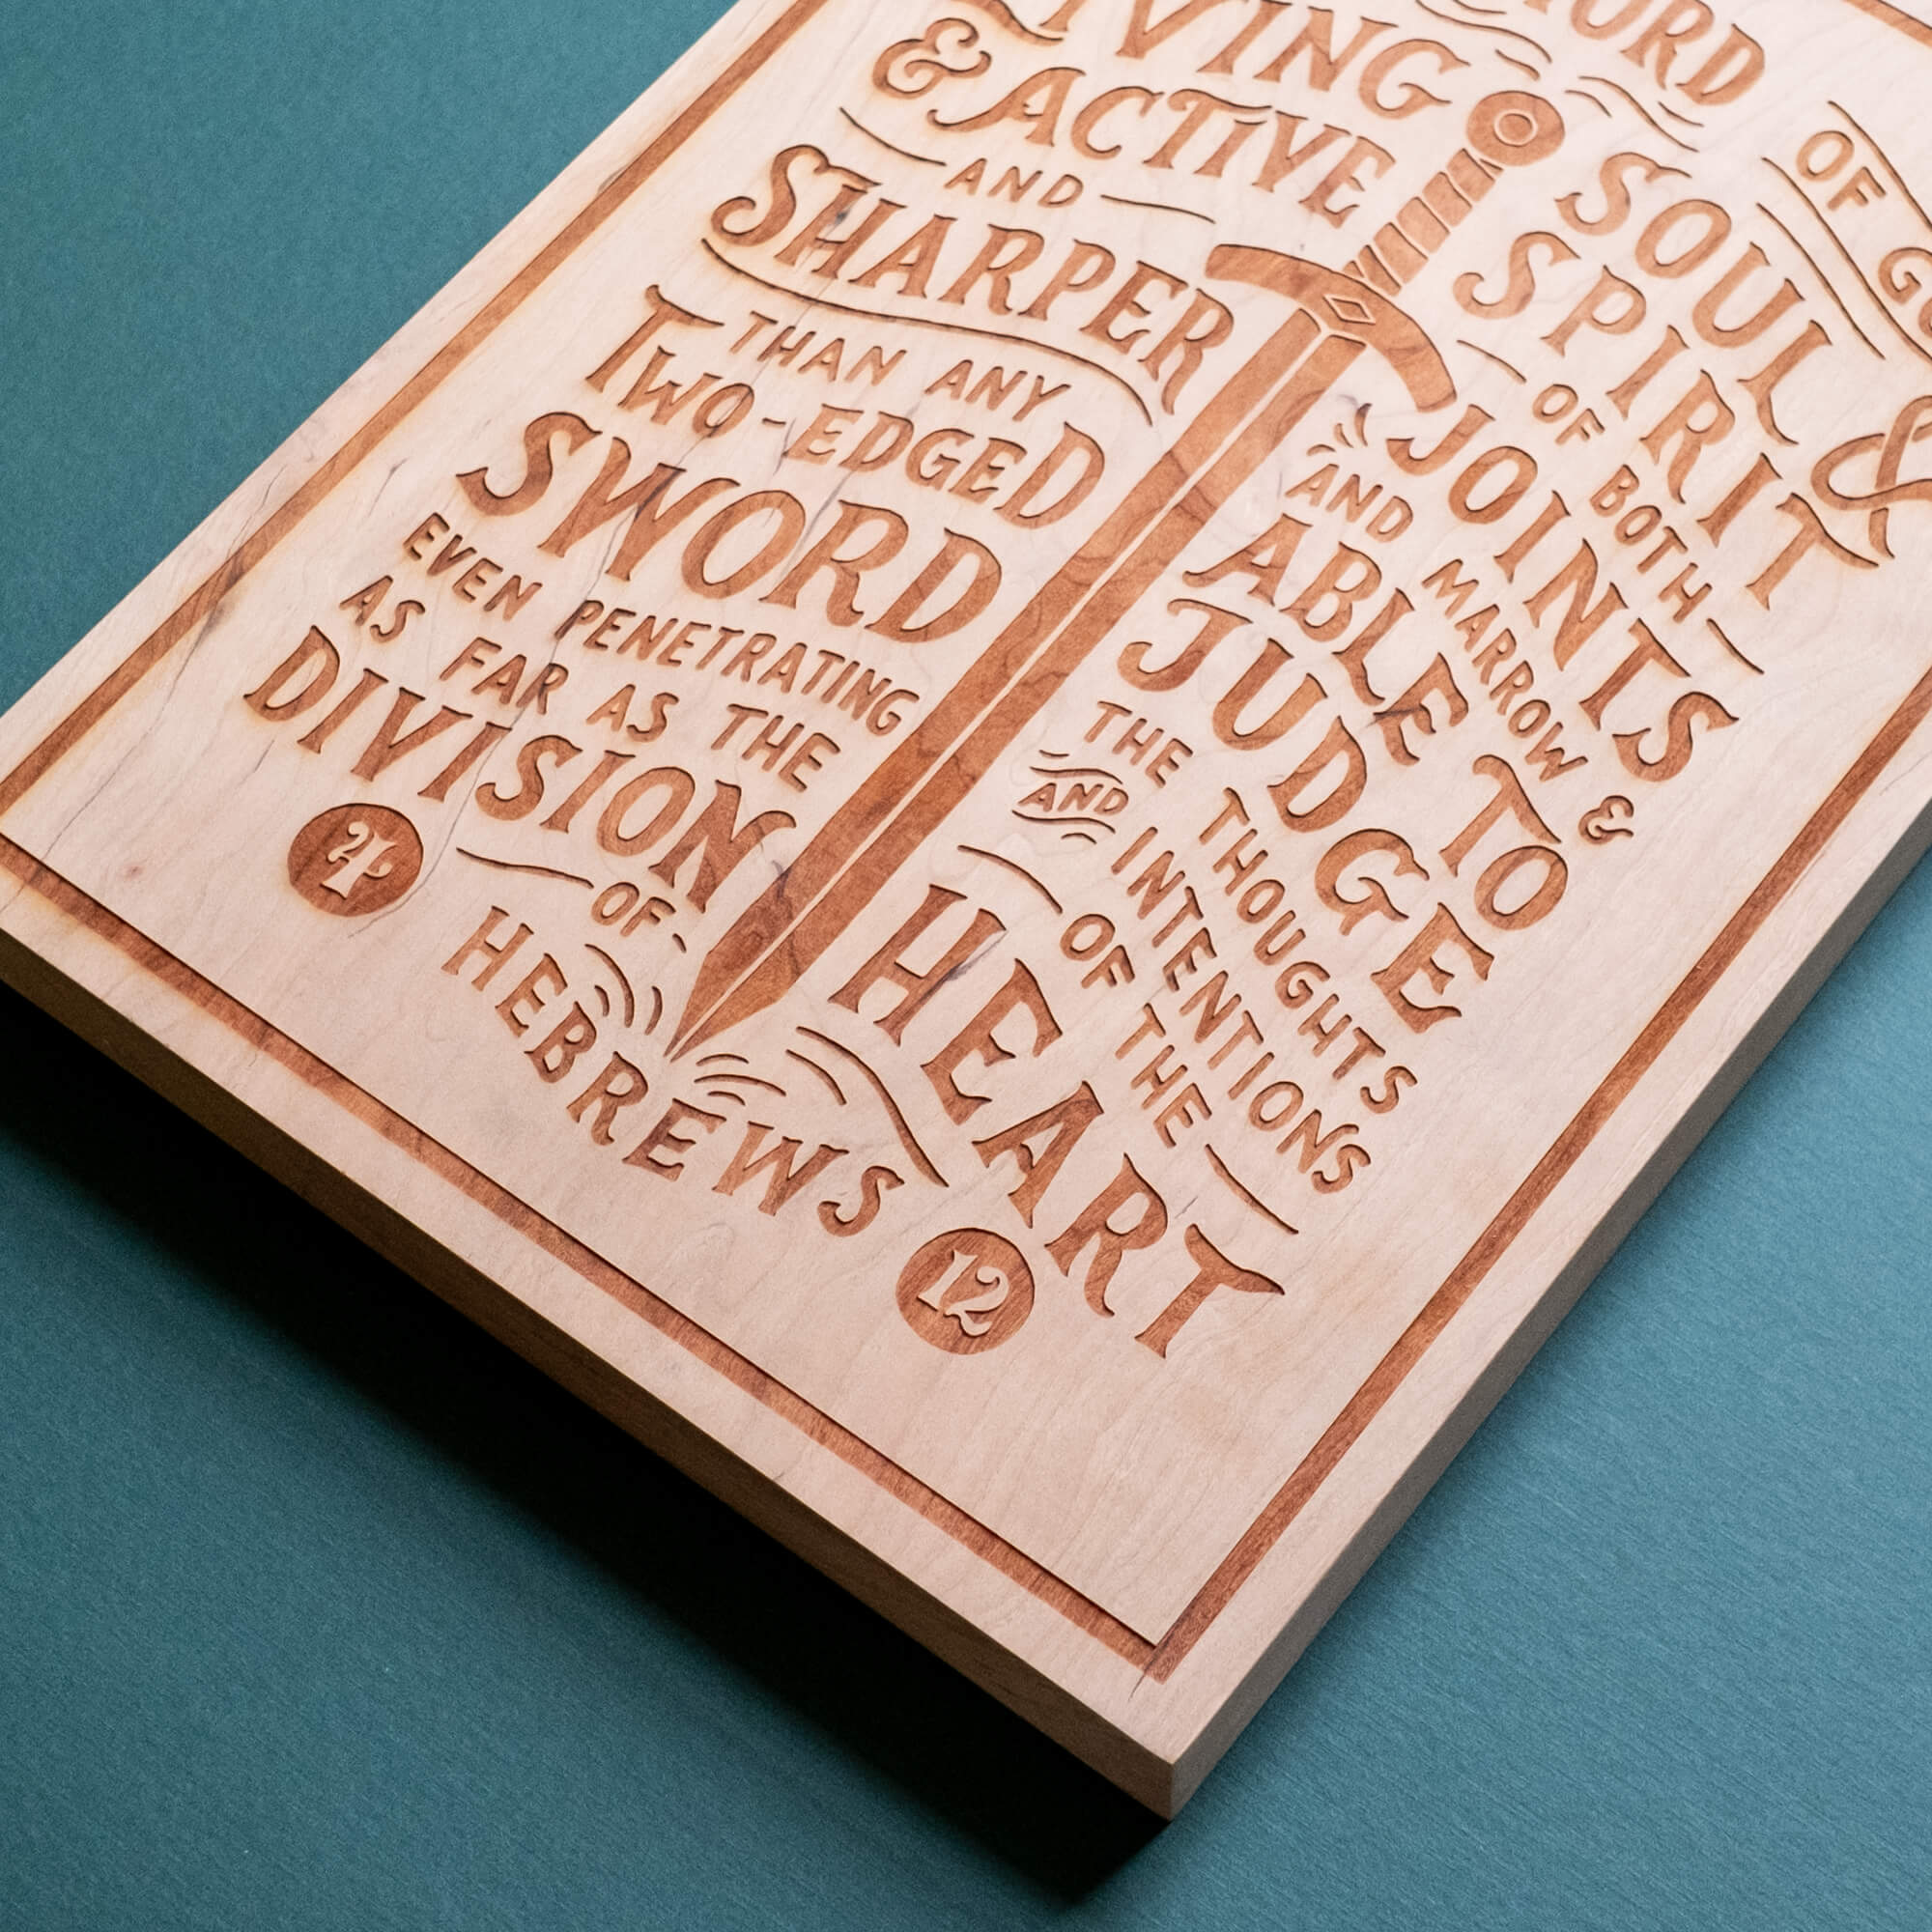 WORD
OF
LIVING
& ACTIVE
AND
SHARPER
THAN ANY
TWO-EDGED
SWORD
EVEN PENETRATING
AS FAR AS THE
DIVISION
OF
SOUL &
SPIRIT
OF BOTH
JOINTS
AND MARROW &
ABLE TO
JUDGE
THE THOUGHTS
AND INTENTIONS
OF THE
HEART
4 HEBREWS 12